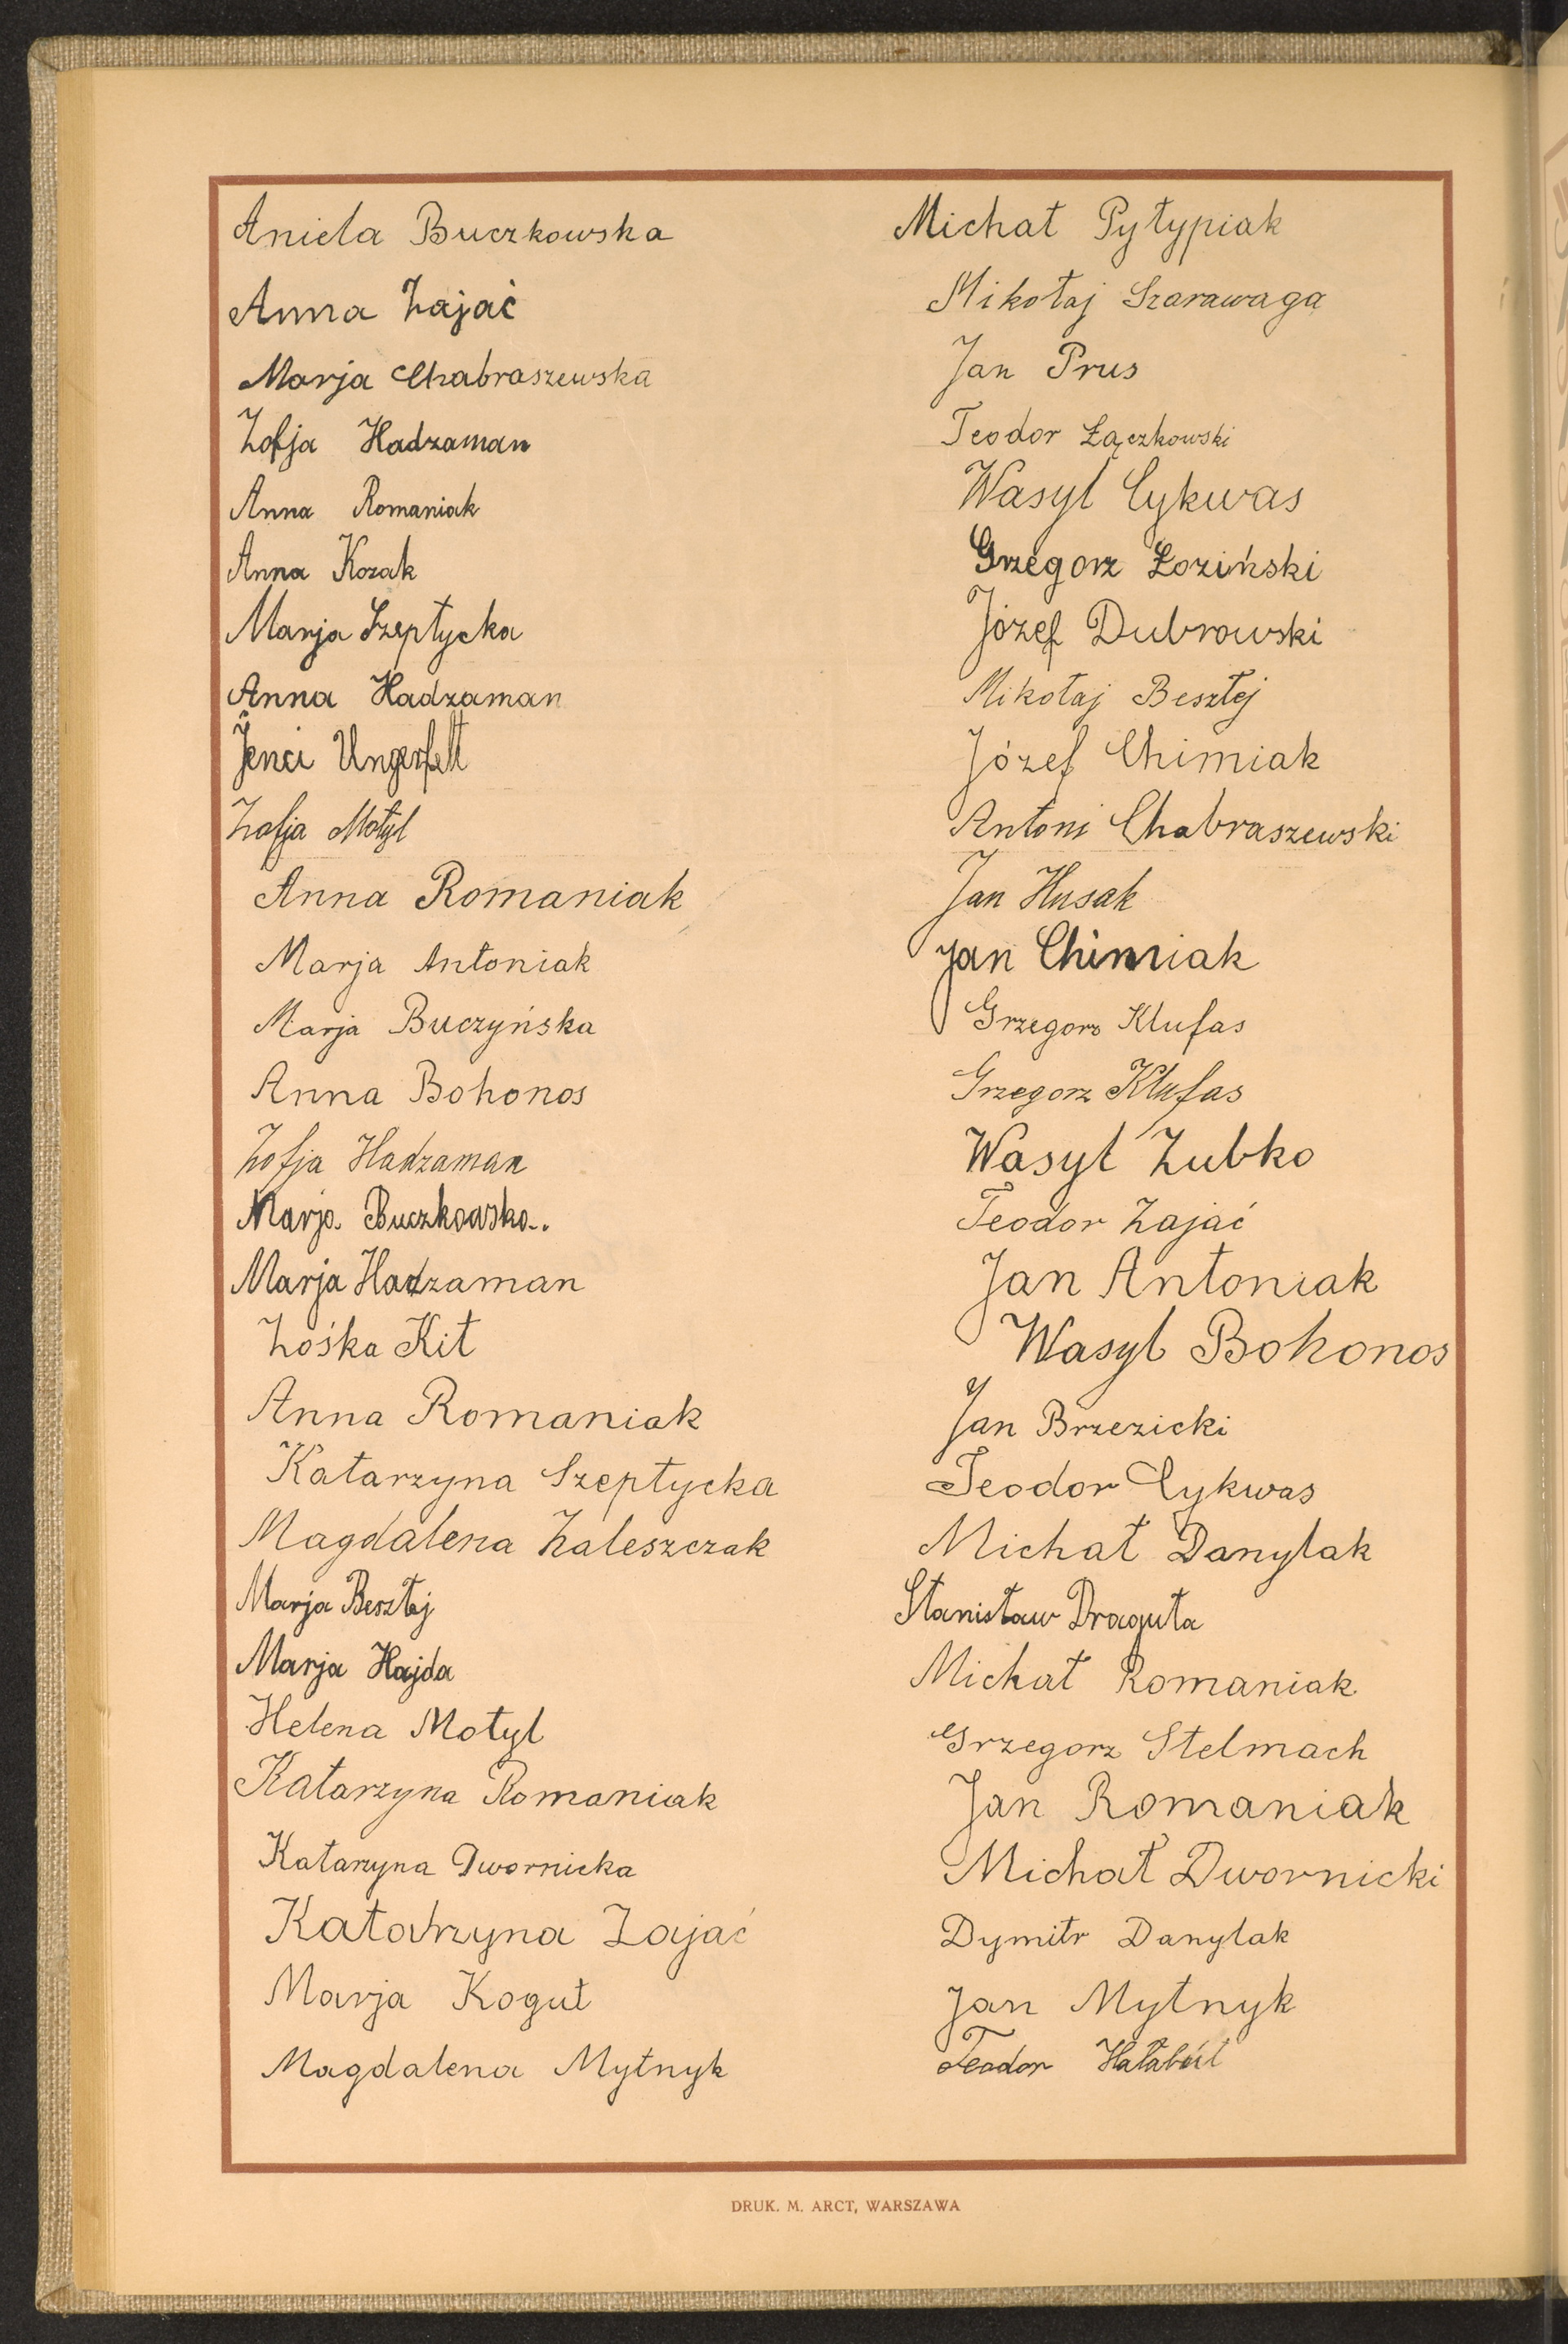 Aniela Buczkowska
Anna Zajać
Marja Chabraszewska
Zofja Hadzaman
Anna Romaniak
Anna Kozak
Marja Szeptycka
Anna Hadzaman
Jenci Ungerfelt
Zofja Motyl
Anna Romaniak
Marja Antoniak
Marja Buczyńska
Anna Bohonos
Zofja Hadzaman
Marja Buczkowska.
Marja Hadzaman
Zośka Kit
Anna Romaniak
Katarzyna Szeptycka
Magdalena Zaleszczak
Marja Besztej
Marja Hajda
Helena Motyl
Katarzyna Romaniak
Katarzyna Dwornicka
Katarzyna Zajać
Marja Kogut
Magdalena Mytnyk
Michał Pyłypiak
Mikołaj Szarawaga
Jan Prus
Teodor Łączkowski
Wasyl Cykwas
Grzegorz Łoziński
Józef Dubrowski
Mikołaj Besztej
Józef Chimiak
Antoni Chabraszewski
Jan Husak
Jan Chimiak
Grzegorz Klufas
Grzegorz Klufas
Wasyl Zubko
Teodor Zajać
Jan Antoniak
Wasyl Bohonos
Jan Brzezicki
Teodor Cykwas
Michał Danylak
Stanisław Draguła
Michał Romaniak
Grzegorz Stelmach
Jan Romaniak
Michał Dwornicki
Dymitr Danylak
Jan Mytnyk
Teodor
DRUK. M. ARCT, WARSZAWA